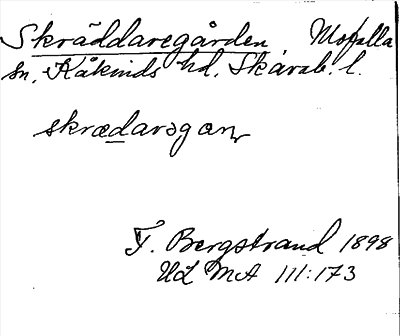 Skräddaregården, Mofalla
sn, Kåkinds hd, Skarab. l.
skrædarəgan
F. Bergstrand 1898
Ud MA III:173